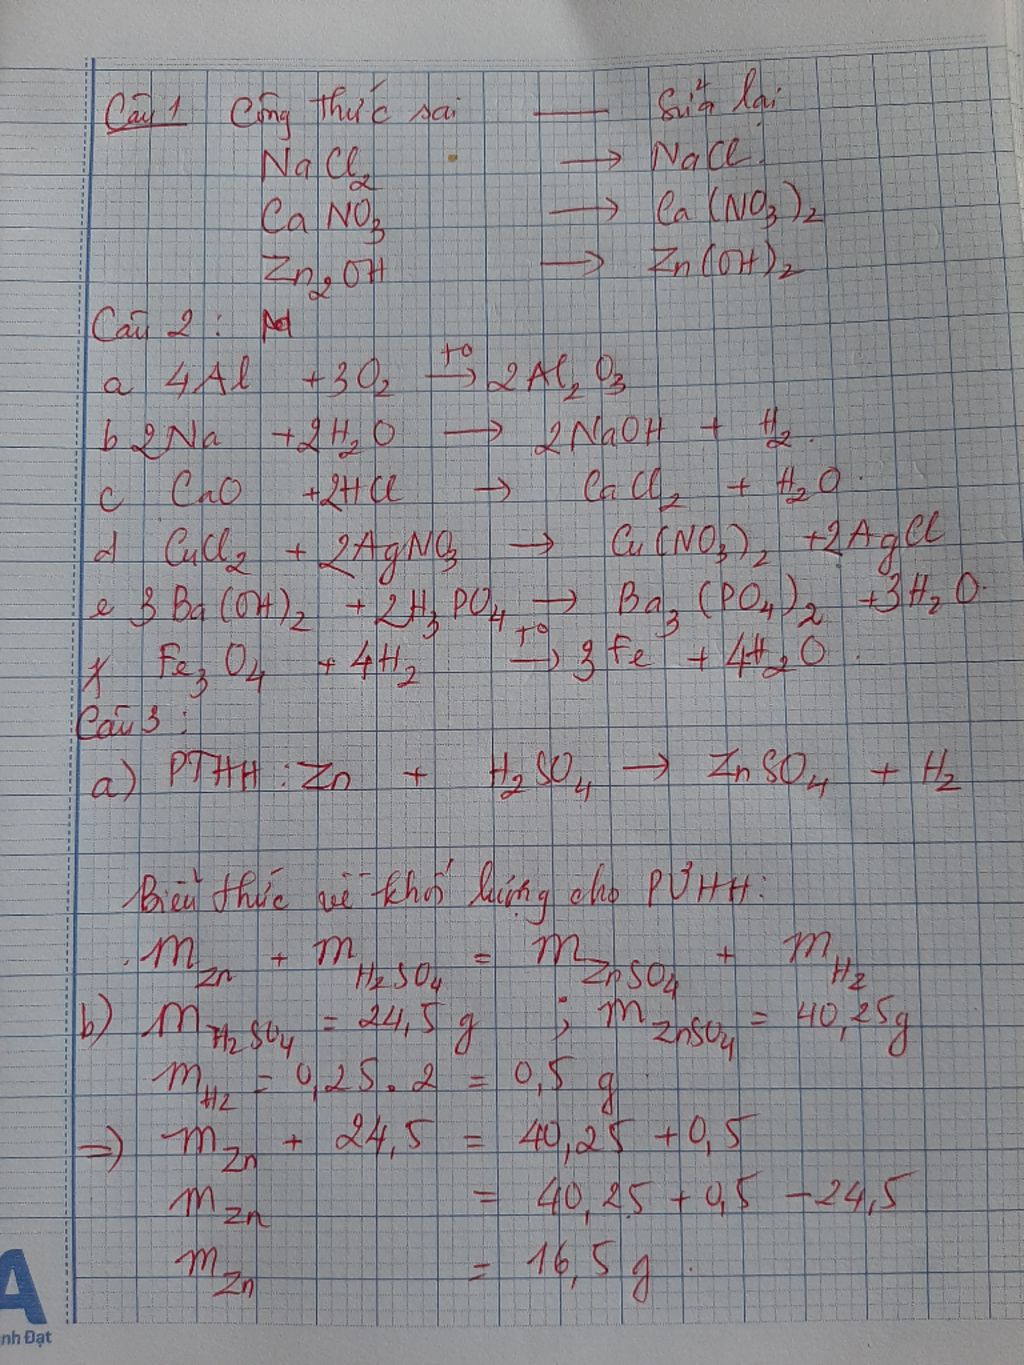 Câu 1 Công thức sai — Sửa lại
NaCl₂ → NaCl
CaNO₃ → Ca(NO₃)₂
Zn₂OH → Zn(OH)₂
Câu 2:
a 4Al + 3O₂ →(t⁰) 2Al₂O₃
b 2Na + 2H₂O → 2NaOH + H₂.
c CaO + 2HCl → CaCl₂ + H₂O.
d CuCl₂ + 2AgNO₃ → Cu(NO₃)₂ + 2AgCl
e 3Ba(OH)₂ + 2H₃PO₄ → Ba₃(PO₄)₂ + 3H₂O.
f Fe₃O₄ + 4H₂ →(t⁰) 3Fe + 4H₂O.
Câu 3:
a) PTHH: Zn + H₂SO₄ → ZnSO₄ + H₂
Biểu thức về khối lượng cho PƯHH:
m Zn + m H₂SO₄ = m ZnSO₄ + m H₂
b) m H₂SO₄ = 24,5 g ; m ZnSO₄ = 40,25g
m H₂ = 0,25.2 = 0,5 g
=> m Zn + 24,5 = 40,25 + 0,5
m Zn = 40,25 + 0,5 - 24,5
m Zn = 16,5 g.
A
nh Đạt